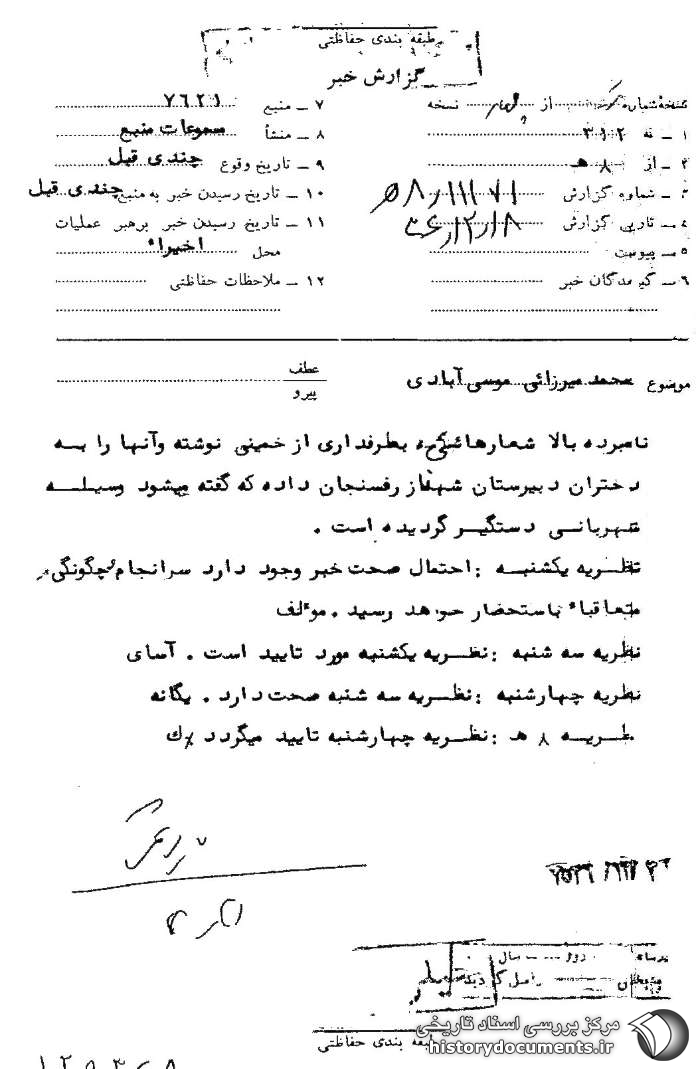 طبقه بندی حفاظتی
گزارش خبر
نسخهٔ شماره از چهار نسخه
۱ ــ به ۳۱۲
۲ ــ از ۸ هـ
۳ ــ شماره گزارش
۴ ــ تاریخ گزارش ۳۶٫۱۲٫۱۸
۵ ــ پیوست
۶ ــ گیرندگان خبر
۷ ــ منبع ۷۶۲۱
۸ ــ منشأ سموعات منبع
۹ ــ تاریخ وقوع چندی قبل
۱۰ ــ تاریخ رسیدن خبر به منبع چندی قبل
۱۱ ــ تاریخ رسیدن خبر برهبر عملیات
محل اخیراً
۱۲ ــ ملاحظات حفاظتی
موضوع محمد میرزائی موسی آبادی
عطف
پیرو
نامبرده بالا شعارهائی بطرفداری از خمینی نوشته وآنها را به
دختران دبیرستان شهناز رفسنجان داده که گفته میشود وسیله
شهربانی دستگیر گردیده است .
نظریه یکشنبه : احتمال صحت خبر وجود دارد سرانجام چگونگی
متعاقباً باستحضار خواهد رسید . مؤلف
نظریه سه شنبه : نظریه یکشنبه مورد تایید است . آسای
نظریه چهارشنبه : نظریه سه شنبه صحت دارد . یگانه
نظریه ۸ هـ : نظریه چهارشنبه تایید میگردد
روز سال
بایگانی واصل گردید
طبقه بندی حفاظتی
مرکز بررسی اسناد تاریخی
historydocuments.ir